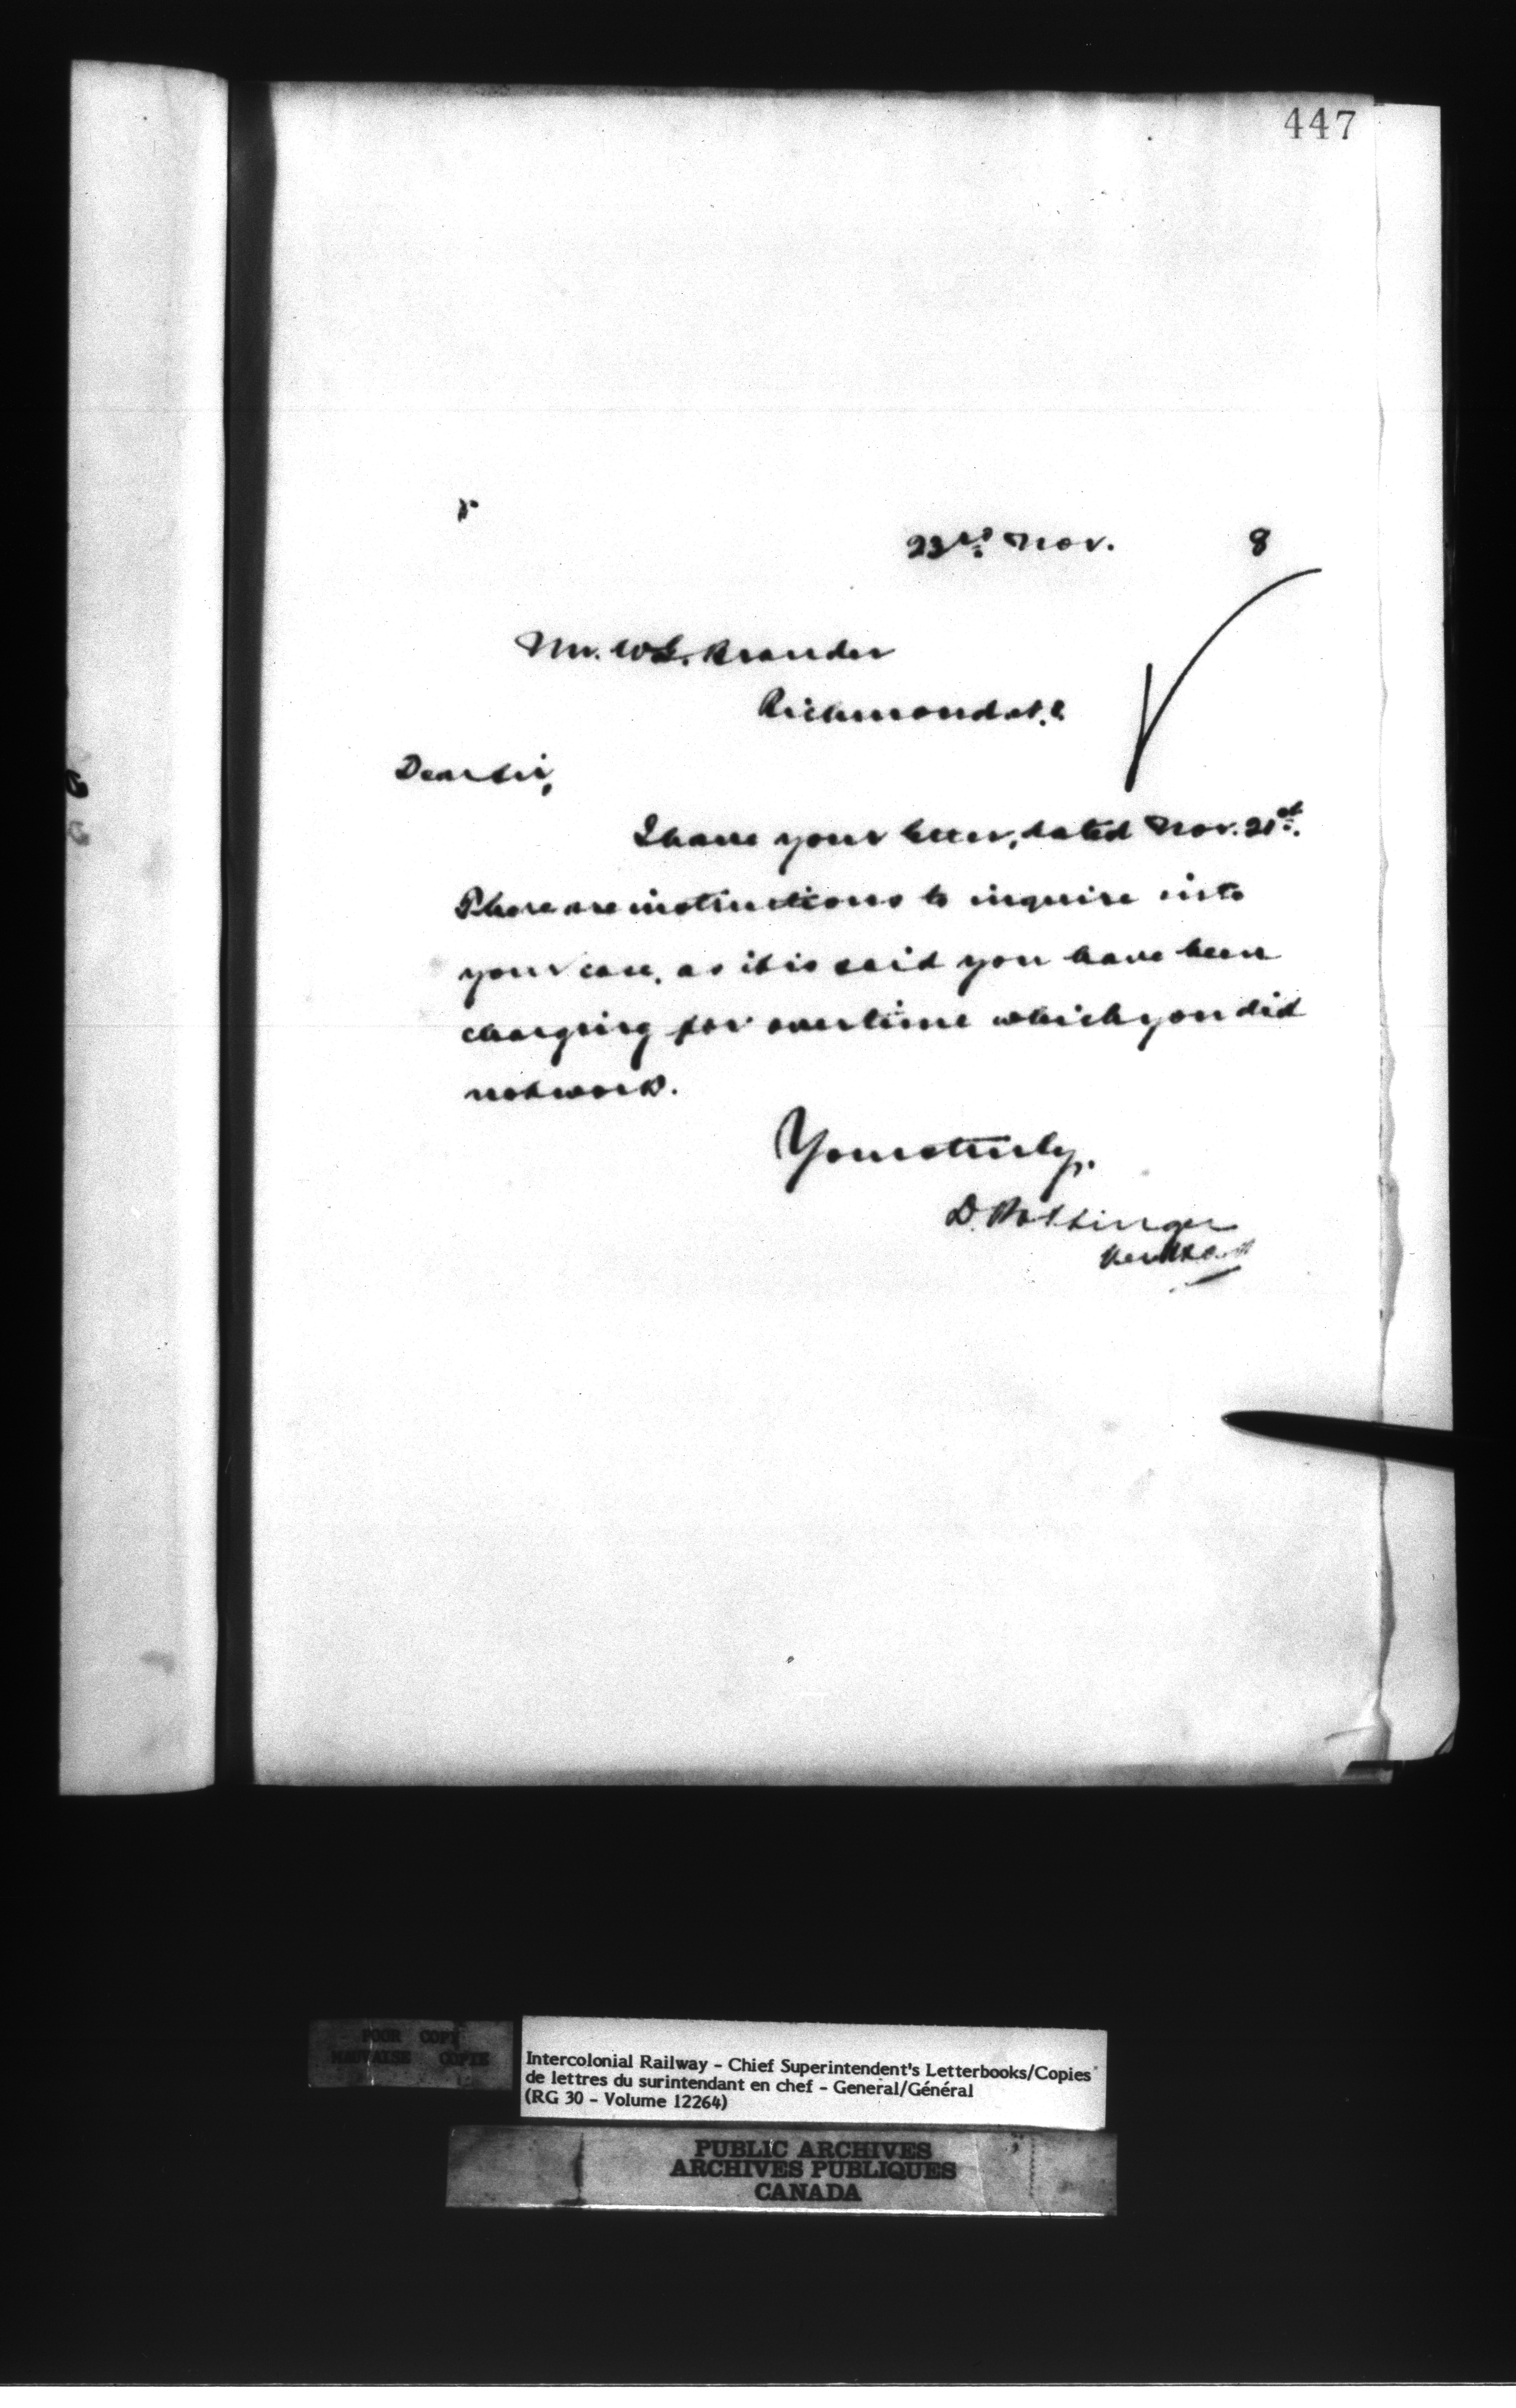 447
23rd Nov. 8
Mr. W. Brander
Richmond
Dear Sir,
I have your letter, dated Nov. 21st.
There are instructions to inquire into
your case, as it is said you have been
charging for overtime which you did
not work.
Yours truly,
D. Pottinger
POOR COPY
MAUVAISE COPIE
Intercolonial Railway - Chief Superintendent's Letterbooks/Copies
de lettres du surintendant en chef - General/Général
(RG 30 - Volume 12264)
PUBLIC ARCHIVES
ARCHIVES PUBLIQUES
CANADA